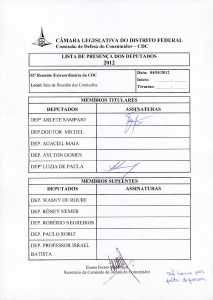 CÂMARA LEGISLATIVA DO DISTRITO FEDERAL
Comissão de Defesa do Consumidor – CDC
LISTA DE PRESENÇA DOS DEPUTADOS
2012
02ª Reunião Extraordinária da CDC
Data 04/04/2012
Local: Sala de Reunião das Comissões
Início :
Término:
MEMBROS TITULARES
DEPUTADOS ASSINATURAS
DEPª ARLETE SAMPAIO
DEP.DOUTOR MICHEL
DEP. AGACIEL MAIA
DEP. AYLTON GOMES
DEPª LUZIA DE PAULA
MEMBROS SUPLENTES
DEPUTADOS ASSINATURAS
DEP. WASNY DE ROURE
DEP. RÔNEY NEMER
DEP. ROBÉRIO NEGREIROS
DEP. PAULO RORIZ
DEP. PROFESSOR ISRAEL
BATISTA
Secretário da Comissão de Defesa do Consumidor
Não houve por
falta de quorum